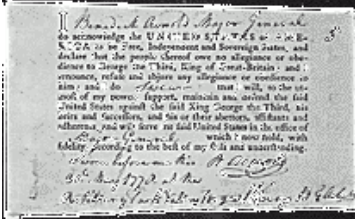 I Benedict Arnold Major General
do acknowledge the UNITED STATES of AME-
RICA to be Free, Independent and Sovereign States, and
declare that the people thereof owe no allegiance or obe-
dience to George the Third, King of Great-Britain; and I
renounce, refuse and abjure any allegiance or obedience to
him; and I do Swear that I will, to the ut-
most of my power, support, maintain and defend the said
United States against the said King George the Third, his
heirs and successors, and his or their abettors, assistants and
adherents, and will serve the said United States in the office of
Major General which I now hold, with
fidelity, according to the best of my skill and understanding.
Sworn before me this B Arnold
30th May 1778 at the
Artillery Park Valley Forge